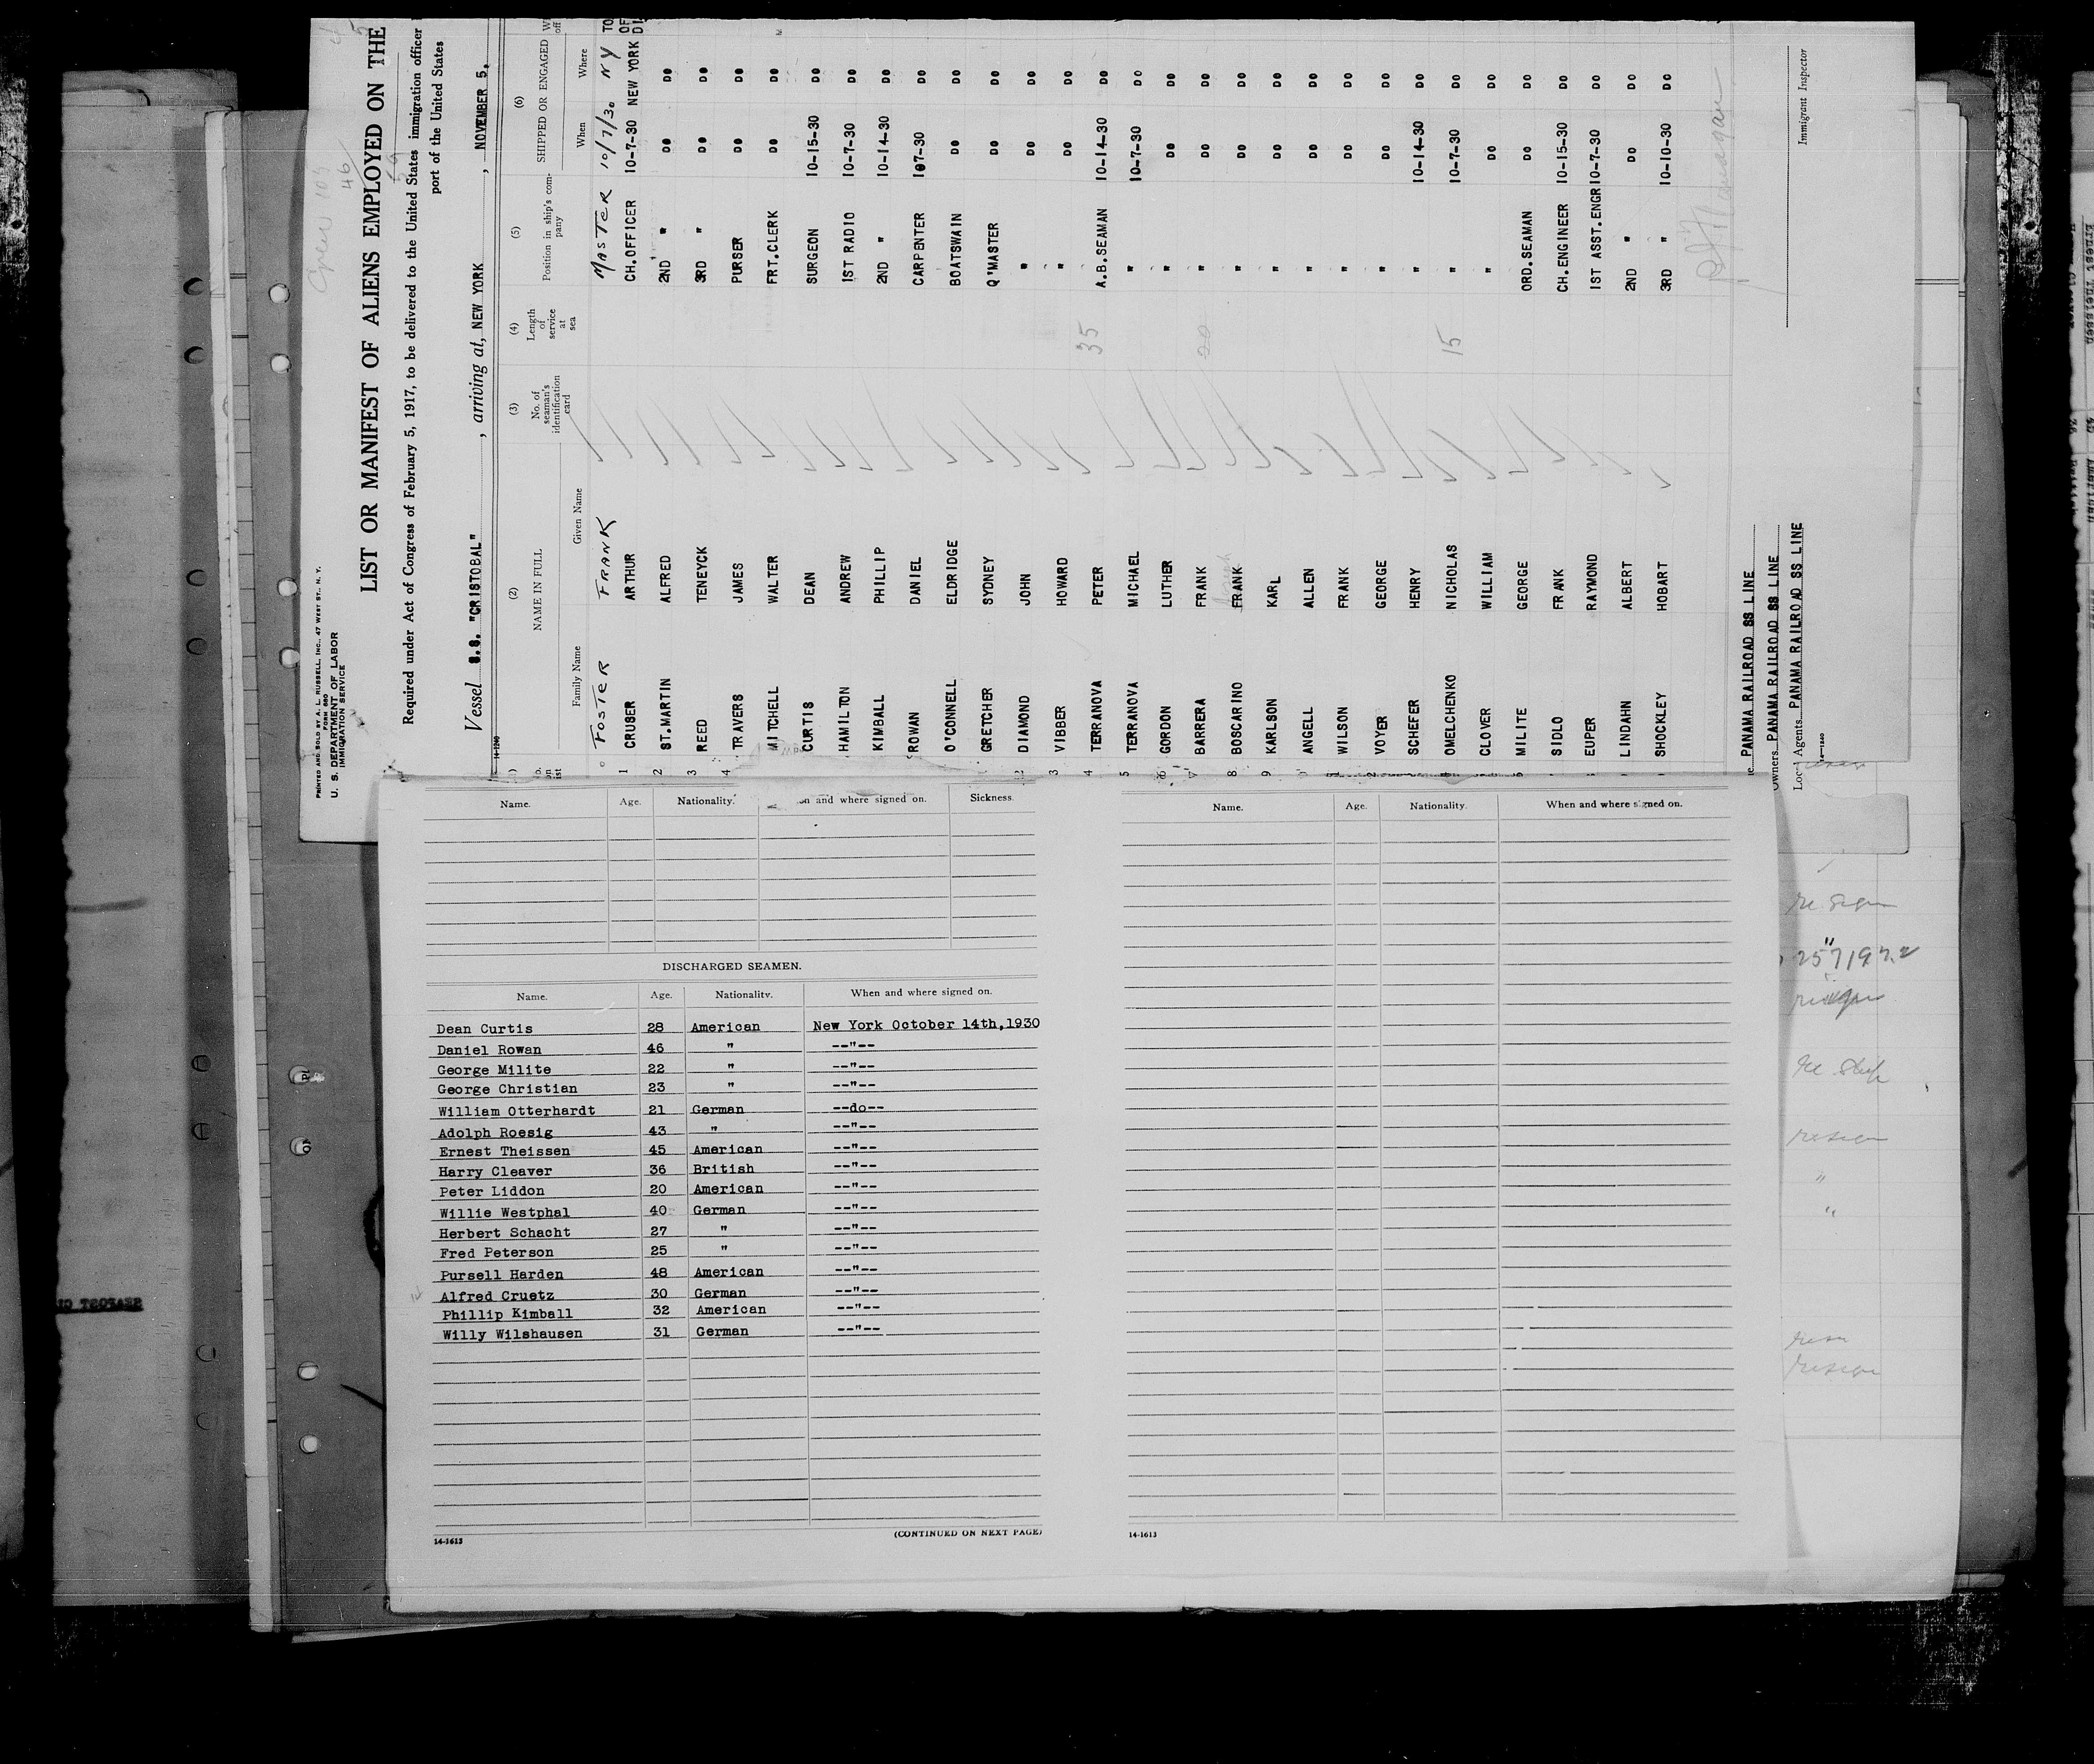 PRINTED AND SOLD BY A. L. RUSSELL, INC., 47 WEST ST., N. Y.
FORM 680
U. S. DEPARTMENT OF LABOR
IMMIGRATION SERVICE
LIST OR MANIFEST OF ALIENS EMPLOYED ON THE
Required under Act of Congress of February 5, 1917, to be delivered to the United States immigration officer
port of the United States
Vessel S.S. "CRISTOBAL", arriving at, NEW YORK, NOVEMBER 5,
14-1240
(2) (3) (4) (5) (6)
NAME IN FULL No. of seaman's identification card Length of service at sea Position in ship's company SHIPPED OR ENGAGED
Family Name Given Name When Where
FOSTER FRANK MASTER 10/7/30 NY
1 CRUSER ARTHUR CH.OFFICER 10-7-30 NEW YORK
2 ST.MARTIN ALFRED 2ND " DO DO
3 REED TENEYCK 3RD " DO DO
4 TRAVERS JAMES PURSER DO DO
MITCHELL WALTER FRT.CLERK DO DO
CURTIS DEAN SURGEON 10-15-30 DO
HAMILTON ANDREW 1ST RADIO 10-7-30 DO
KIMBALL PHILLIP 2ND " 10-14-30 DO
ROWAN DANIEL CARPENTER 107-30 DO
O'CONNELL ELDRIDGE BOATSWAIN DO DO
GRETCHER SYDNEY Q'MASTER DO DO
DIAMOND JOHN " DO DO
3 VIBBER HOWARD " DO DO
4 TERRANOVA PETER 35 A.B.SEAMAN 10-14-30 DO
5 TERRANOVA MICHAEL " 10-7-30 DO
GORDON LUTHER " DO DO
BARRERA FRANK 20 " DO DO
8 BOSCARINO FRANK Joseph " DO DO
9 KARLSON KARL " DO DO
ANGELL ALLEN " DO DO
WILSON FRANK " DO DO
VOYER GEORGE " DO DO
SCHEFER HENRY " 10-14-30 DO
OMELCHENKO NICHOLAS 15 " 10-7-30 DO
CLOVER WILLIAM " DO DO
MILITE GEORGE ORD.SEAMAN DO DO
SIDLO FRANK CH.ENGINEER 10-15-30 DO
EUPER RAYMOND 1ST ASST.ENGR 10-7-30 DO
LINDAHN ALBERT 2ND " DO DO
SHOCKLEY HOBART 3RD " 10-10-30 DO
PANAMA RAILROAD SS LINE
Owners PANAMA RAILROAD SS LINE
Local Agents PANAMA RAILROAD SS LINE
Immigrant Inspector
14-1240
Name. Age. Nationality. and where signed on. Sickness.
DISCHARGED SEAMEN.
Name. Age. Nationality. When and where signed on.
Dean Curtis 28 American New York October 14th,1930
Daniel Rowan 46 " --"--
George Milite 22 " --"--
George Christian 23 " --"--
William Otterhardt 21 German --do--
Adolph Roesig 43 " --"--
Ernest Theissen 45 American --"--
Harry Cleaver 36 British --"--
Peter Liddon 20 American --"--
Willie Westphal 40 German --"--
Herbert Schacht 27 " --"--
Fred Peterson 25 " --"--
Pursell Harden 48 American --"--
Alfred Cruetz 30 German --"--
Phillip Kimball 32 American --"--
Willy Wilshausen 31 German --"--
(CONTINUED ON NEXT PAGE)
14-1613
Name. Age. Nationality. When and where signed on.
14-1613